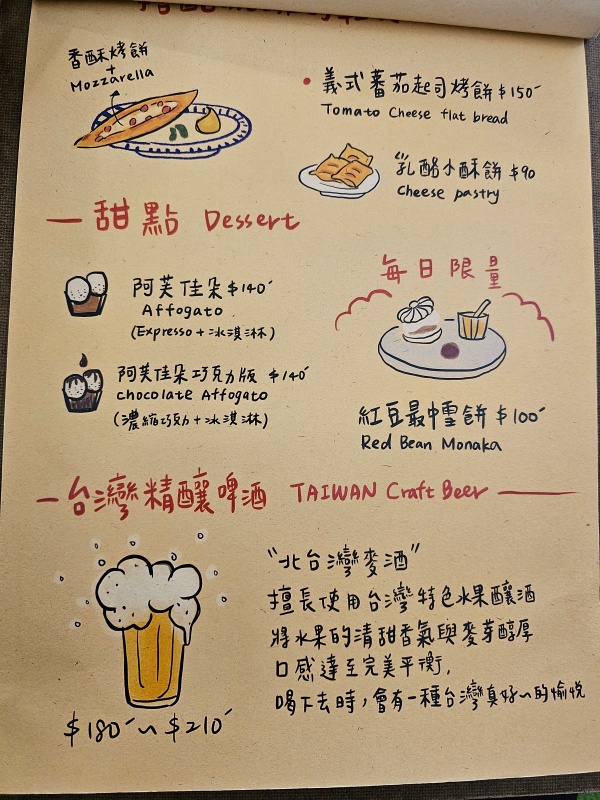 香酥烤餅
+
Mozzarella
義式蕃茄起司烤餅 $150
Tomato Cheese flat bread
乳酪小酥餅 $90
Cheese pastry
甜點 Dessert
每日限量
阿芙佳朵 $140
Affogato
(Expresso + 冰淇淋)
阿芙佳朵巧克力版 $140
chocolate Affogato
(濃縮巧克力 + 冰淇淋)
紅豆最中雪餅 $100
Red Bean Monaka
台灣精釀啤酒 TAIWAN Craft Beer
"北台灣麥酒"
擅長使用台灣特色水果釀酒
將水果的清甜香氣與麥芽醇厚
口感達至完美平衡,
喝下去時,會有一種台灣真好~的愉悅
$180~$210